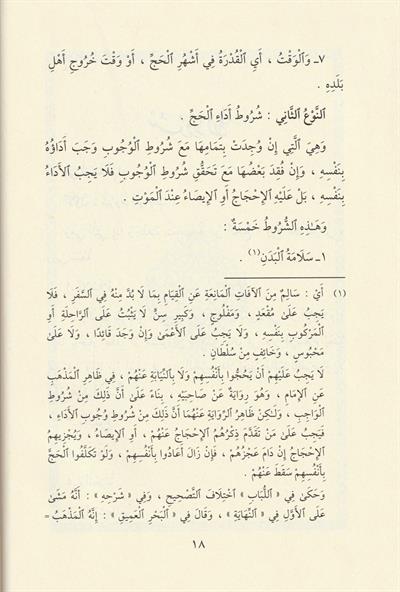 ٧ـ وَٱلْوَقْتُ ، أَيِ ٱلْقُدْرَةُ فِي أَشْهُرِ ٱلْحَجِّ ، أَوْ وَقْتَ خُرُوجِ أَهْلِ
بَلَدِهِ .
ٱلنَّوْعُ ٱلثَّانِي : شُرُوطُ أَدَاءِ ٱلْحَجِّ .
وَهِيَ ٱلَّتِي إِنْ وُجِدَتْ بِتَمَامِهَا مَعَ شُرُوطِ ٱلْوُجُوبِ وَجَبَ أَدَاؤُهُ
بِنَفْسِهِ ، وَإِنْ فُقِدَ بَعْضُهَا مَعَ تَحَقُّقِ شُرُوطِ ٱلْوُجُوبِ فَلَا يَجِبُ ٱلْأَدَاءُ
بِنَفْسِهِ ، بَلْ عَلَيْهِ ٱلْإِحْجَاجُ أَوِ ٱلْإِيصَاءُ عِنْدَ ٱلْمَوْتِ .
وَهَـٰذِهِ ٱلشُّرُوطُ خَمْسَةٌ :
١ـ سَلَامَةُ ٱلْبَدَنِ(١) .
(١) أَيْ : سَالِمٌ مِنَ ٱلْآفَاتِ ٱلْمَانِعَةِ عَنِ ٱلْقِيَامِ بِمَا لَا بُدَّ مِنْهُ فِي ٱلسَّفَرِ ، فَلَا
يَجِبُ عَلَىٰ مُقْعَدٍ ، وَمَفْلُوجٍ ، وَكَبِيرِ سِنٍّ لَا يَثْبُتُ عَلَى ٱلرَّاحِلَةِ أَوِ
ٱلْمَرْكُوبِ بِنَفْسِهِ ، وَلَا يَجِبُ عَلَى ٱلْأَعْمَىٰ وَإِنْ وَجَدَ قَائِدًا ، وَلَا عَلَىٰ
مَحْبُوسٍ ، وَخَائِفٍ مِنْ سُلْطَانٍ .
لَا يَجِبُ عَلَيْهِمْ أَنْ يَحُجُّوا بِأَنْفُسِهِمْ وَلَا بِٱلنِّيَابَةِ عَنْهُمْ ، فِي ظَاهِرِ ٱلْمَذْهَبِ
عَنِ ٱلْإِمَامِ ، وَهُوَ رِوَايَةٌ عَنْ صَاحِبَيْهِ ، بِنَاءً عَلَىٰ أَنَّ ذَلِكَ مِنْ شُرُوطِ
ٱلْوَاجِبِ ، وَلَـٰكِنْ ظَاهِرُ ٱلرِّوَايَةِ عَنْهُمَا أَنَّ ذَلِكَ مِنْ شُرُوطِ وُجُوبِ ٱلْأَدَاءِ ،
فَيَجِبُ عَلَىٰ مَنْ تَقَدَّمَ ذِكْرُهُمُ ٱلْإِحْجَاجُ عَنْهُمْ ، أَوِ ٱلْإِيصَاءُ ، وَيُجْزِيهِمُ
ٱلْإِحْجَاجُ إِنْ دَامَ عَجْزُهُمْ ، فَإِنْ زَالَ أَعَادُوا بِأَنْفُسِهِمْ ، وَلَوْ تَكَلَّفُوا ٱلْحَجَّ
بِأَنْفُسِهِمْ سَقَطَ عَنْهُمْ .
وَحَكَىٰ فِي « ٱللُّبَابِ » ٱخْتِلَافَ ٱلتَّصْحِيحِ ، وَفِي « شَرْحِهِ » : أَنَّهُ مَشَىٰ
عَلَى ٱلْأَوَّلِ فِي « ٱلنِّهَايَةِ » ، وَقَالَ فِي « ٱلْبَحْرِ ٱلْعَمِيقِ » : إِنَّهُ ٱلْمَذْهَبُ =
١٨